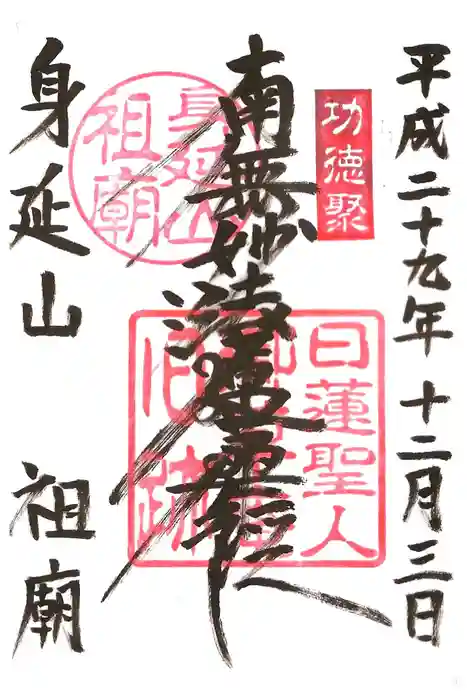 平成二十九年 十二月三日
功徳聚
南無妙法蓮華経
日蓮聖人
旧跡
身延山
祖廟
身延山 祖廟